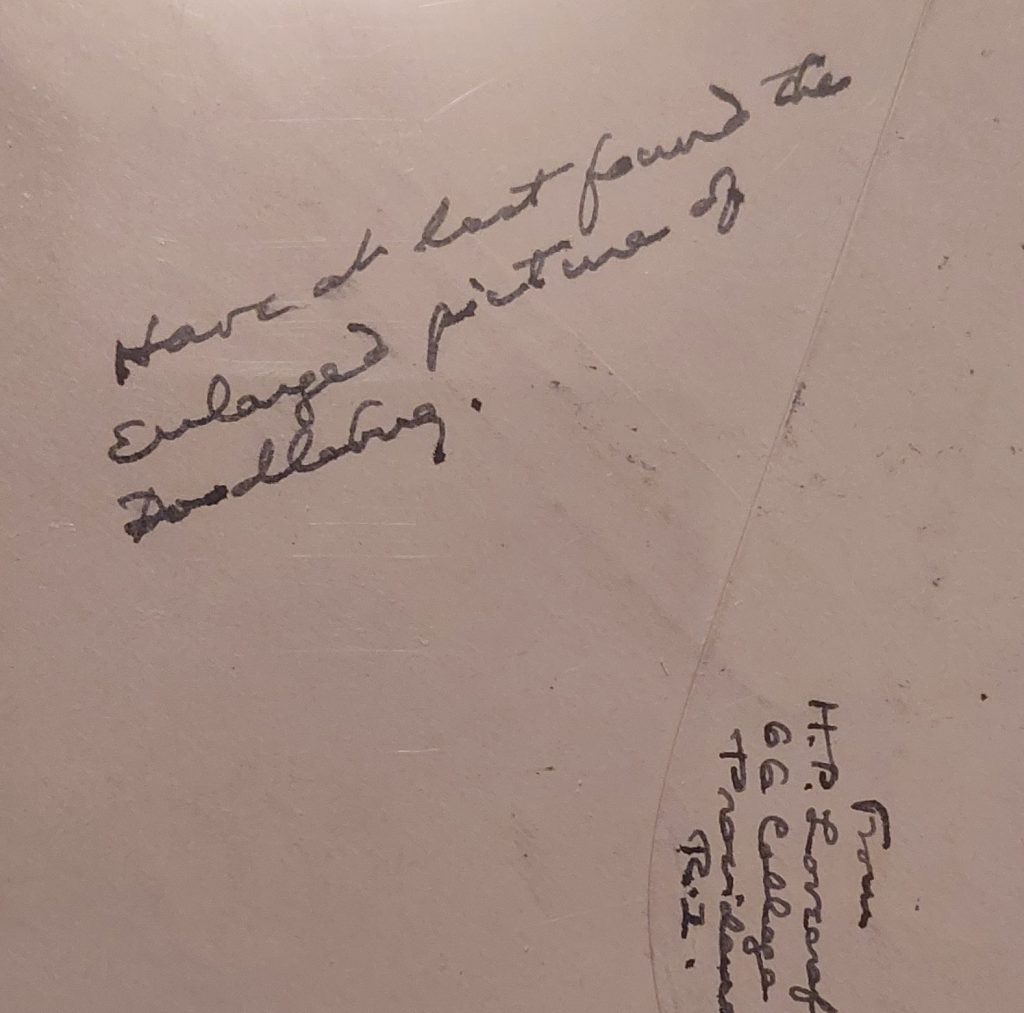 Have at last found the
Enlarged picture of
Doodlebug.
From
H.P. Lovecraf
66 College
Providenc
R.I.